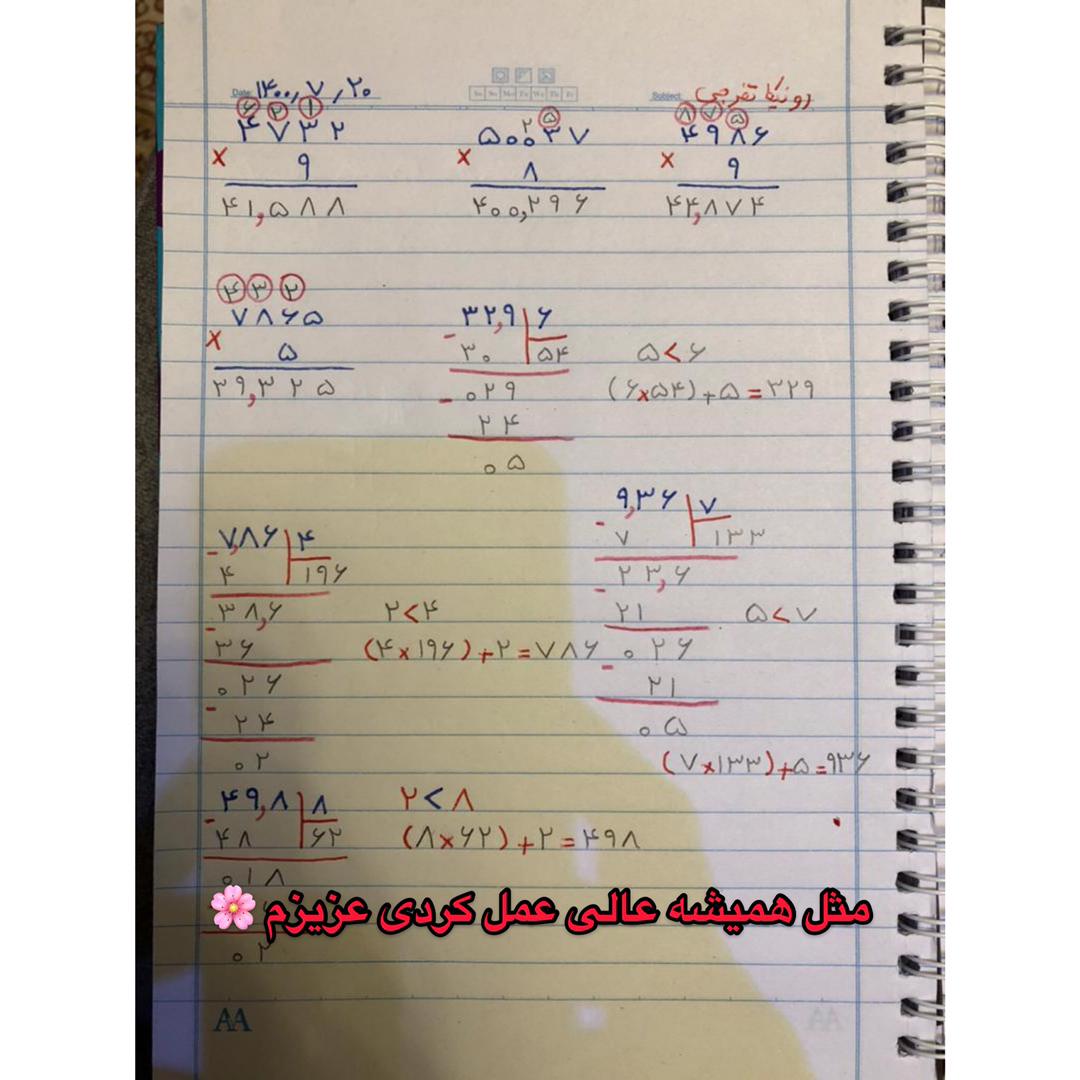 Subject: رونیکا تفرجی
Date: ۱۴۰۰٫۷٫۲۰
۸ ۷ ۵
۴۹۸۶
× ۹
۴۴,۸۷۴
۲ ۵
۵۰۰۳۷
× ۸
۴۰۰,۲۹۶
۶ ۲ ۱
۴۷۳۲
× ۹
۴۱,۵۸۸
۴ ۳ ۲
۷۸۶۵
× ۵
۳۹,۳۲۵
۳۲,۹ ۶
- ۳۰ ۵۴
۰۲۹
- ۲۴
۰۵
۵<۶
(۶×۵۴)+۵=۳۲۹
۹,۳۶ ۷
- ۷ ۱۳۳
۲۳,۶
- ۲۱
۰۲۶
- ۲۱
۰۵
۵<۷
(۷×۱۳۳)+۵=۹۳۶
۷,۸۶ ۴
- ۴ ۱۹۶
۳۸,۶
- ۳۶
۰۲۶
- ۲۴
۰۲
۲<۴
(۴×۱۹۶)+۲=۷۸۶
۴۹,۸ ۸
- ۴۸ ۶۲
۰۱۸
۰۲
۲<۸
(۸×۶۲)+۲=۴۹۸
مثل همیشه عالی عمل کردی عزیزم🌸
AA